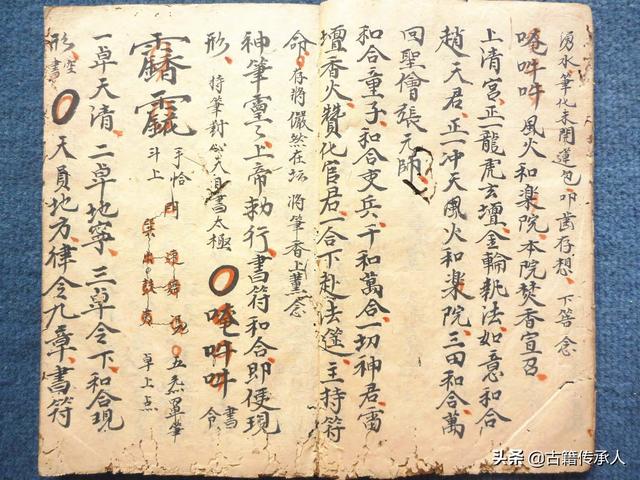 湧水筆化未開蓮包 叩齒存想 下筶念
唵吽吽 風火和樂院 本院焚香宣召
上清宮 正一龍虎玄壇 金輪執法 如意和合
趙天君 正一冲天風火和樂院 三田和合萬
回聖僧張元帥
和合童子 和合吏兵 千和萬合 一切神君雷
壇香火 贊化官君 合下赴法筵 主持符
命 存將儼然在坛 將筆香上薰念
神筆靈々 上帝勅行 書符和合 即便現
形 持筆對 書太極 唵吽吽 書令
手恰 斗上 五炁罩筆 卓上点
一卓天清 二卓地寧 三卓令下 和合現
形 書空 天員地方 律令九章 書符
头条 @古籍传承人